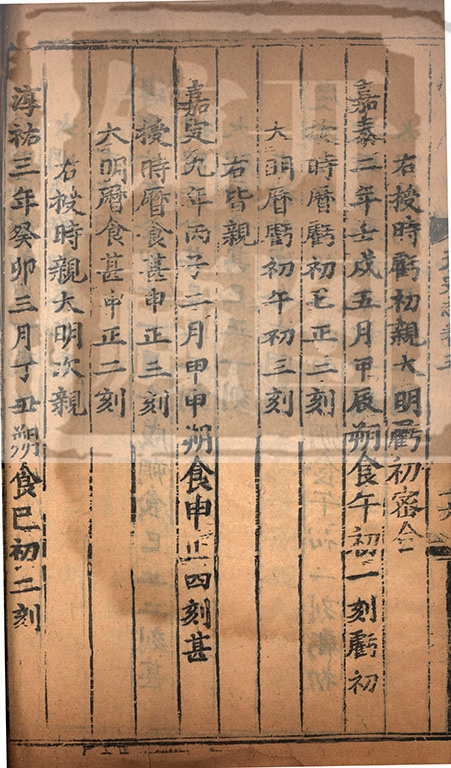 右授時虧初親大明虧初密合
嘉泰二年壬戌五月甲辰朔食午初一刻虧初
授時曆虧初巳正三刻
大明曆虧初午初三刻
右皆親
嘉定九年丙子二月甲申朔食申正四刻甚
授時曆食甚申正三刻
大明曆食甚申正二刻
右授時親大明次親
淳祐三年癸卯三月丁丑朔食巳初二刻